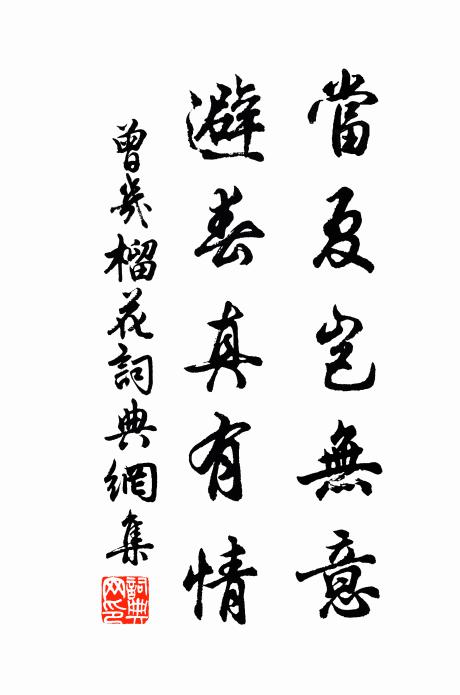 當夏豈無意
避春真有情
曾幾榴花詞典網集
詞典網印